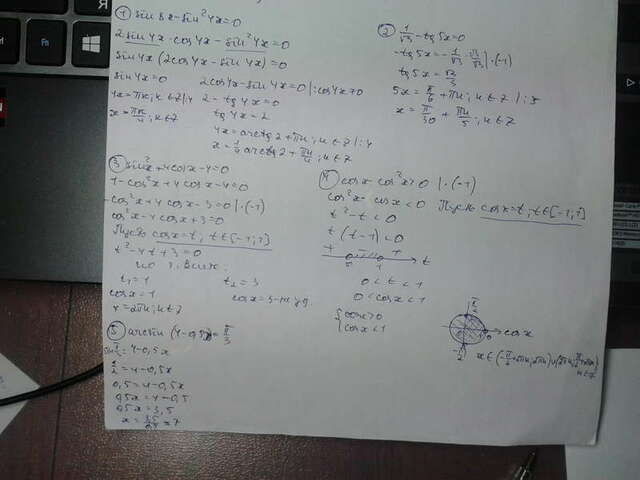 ① sin 8x - sin²4x = 0
2 sin 4x · cos 4x - sin²4x = 0
sin 4x (2cos 4x - sin 4x) = 0
sin 4x = 0
2cos 4x - sin 4x = 0 | : cos 4x ≠ 0
4x = πk; k ∈ Z | : 4
2 - tg 4x = 0
x = πk/4; k ∈ Z
tg 4x = 2
4x = arctg 2 + πk; k ∈ Z | : 4
x = 1/4 arctg 2 + πk/4; k ∈ Z
② 1/√3 - tg 5x = 0
-tg 5x = -1/√3 · √3/√3 | · (-1)
tg 5x = √3/3
5x = π/6 + πk; k ∈ Z | : 5
x = π/30 + πk/5; k ∈ Z
③ sin²x + 4cos x - 4 = 0
1 - cos²x + 4cos x - 4 = 0
-cos²x + 4cos x - 3 = 0 | · (-1)
cos²x - 4cos x + 3 = 0
Пусть cos x = t; t ∈ [-1; 1]
t² - 4t + 3 = 0
по т. Виета:
t₁ = 1 t₂ = 3
cos x = 1 cos x = 3
x = 2πk; k ∈ Z
④ cos x - cos²x > 0 | · (-1)
cos²x - cos x < 0 Пусть cos x = t; t ∈ [-1; 1]
t² - t < 0
t (t - 1) < 0
+ - + t
0 1
0 < t < 1
0 < cos x < 1
{ cos x > 0
cos x < 1
π/2
0 cos x
-π/2
x ∈ (-π/2 + 2πk; 2πk) ∪ (2πk; π/2 + 2πk)
k ∈ Z
⑤ arcsin (4 - 0,5x) = π/3
= 4 - 0,5x
= 4 - 0,5x
0,5 = 4 - 0,5x
0,5x = 4 - 0,5
0,5x = 3,5
x = 3,5/0,5 = 7